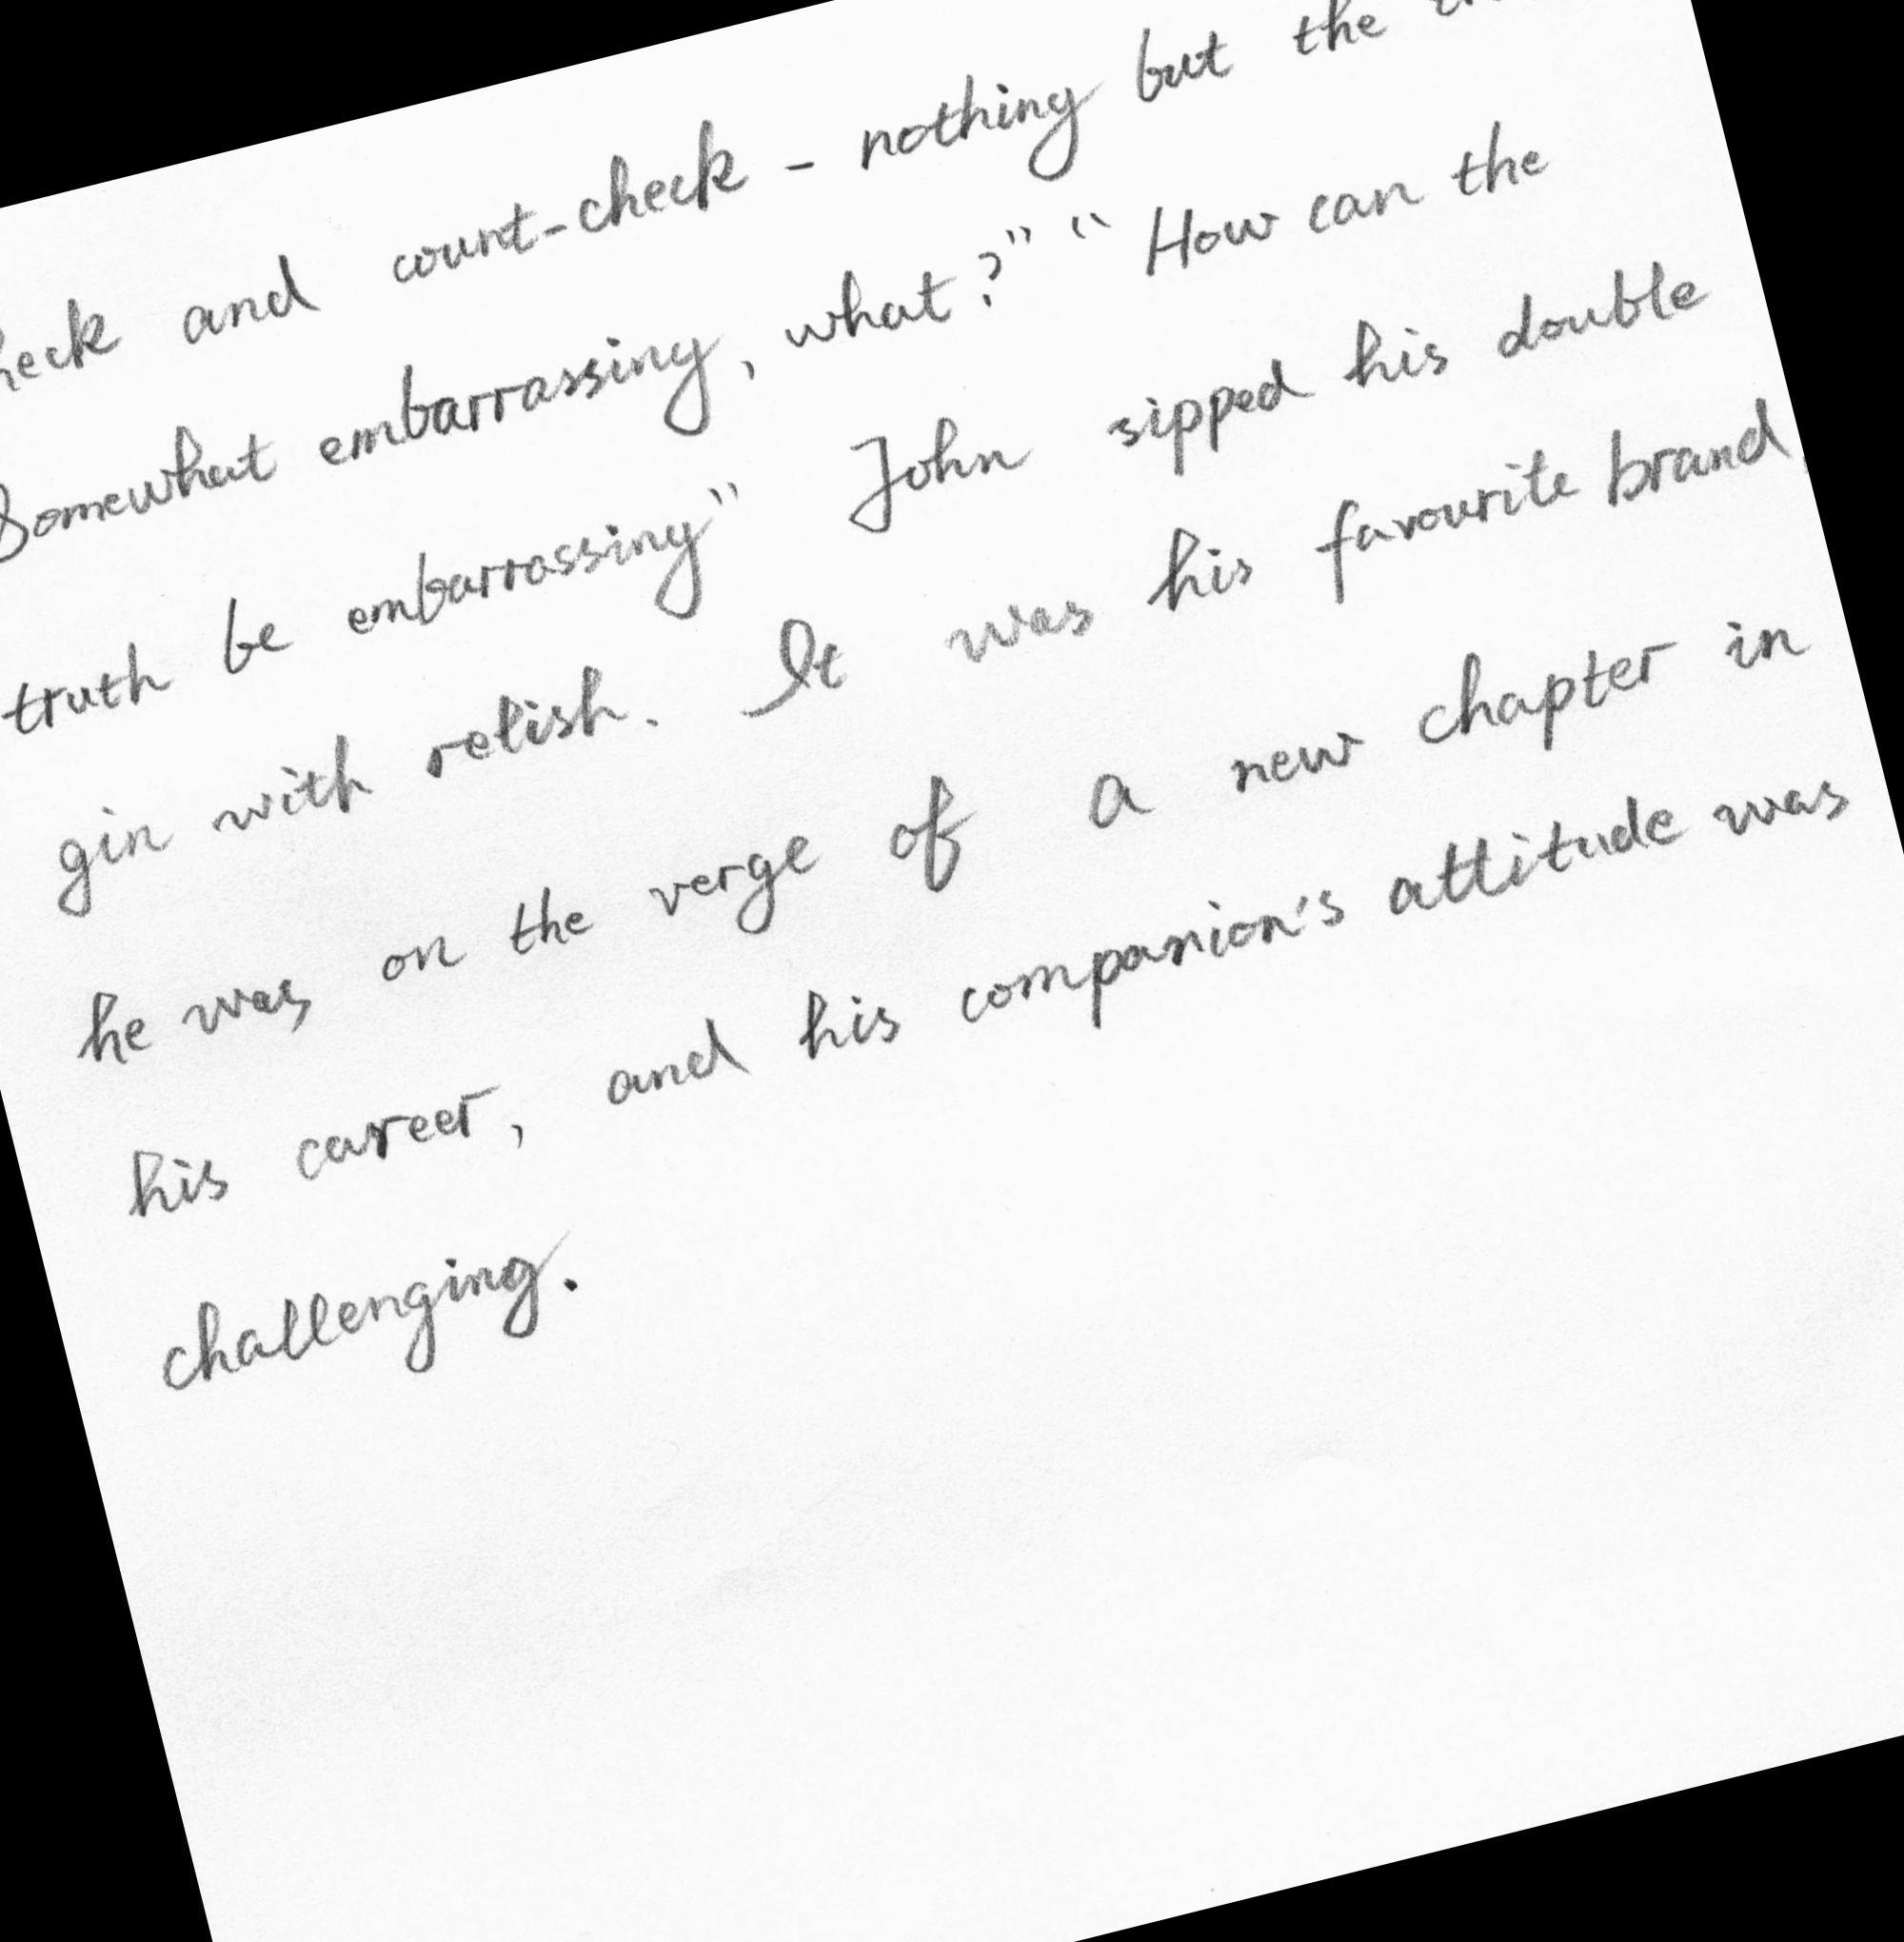 and count-check - nothing but the
Somewhat embarrassing, what?" "How can the
truth be embarrassing" John sipped his double
gin with relish. It was his favourite brand,
he was on the verge of a new chapter in
his career, and his companion's attitude was
challenging.